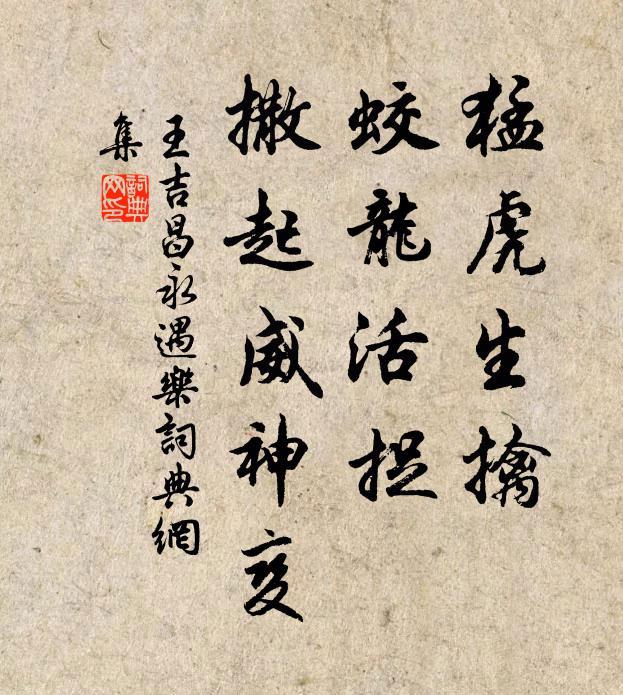 猛虎生擒
蛟龍活捉
撒起威神变
王吉昌永遇樂詞典網
集
詞典
网印